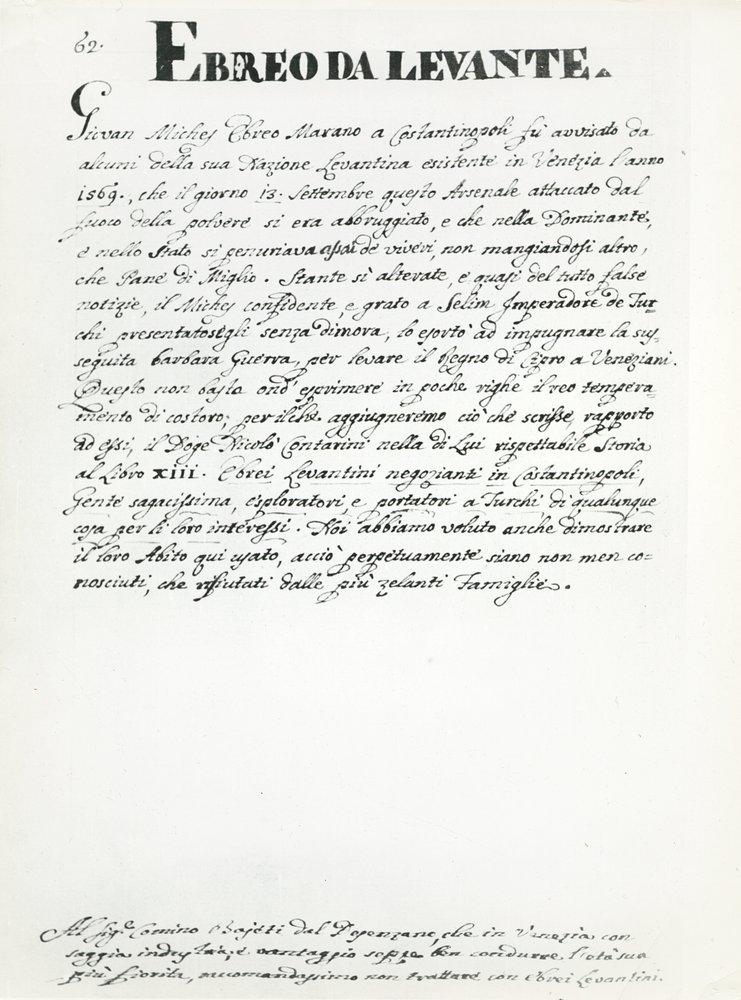 62.
EBREO DA LEVANTE.
Giovan Miches Ebreo Marano a Costantinopoli fù avvisato da
alcuni della sua Nazione Levantina esistente in Venezia l'anno
1569., che il giorno 13. Settembre questo Arsenale attaccato dal
fuoco della polvere si era abbruggiato, e che nella Dominante,
e nello Stato si penuriava assai de viveri, non mangiandosi altro,
che Pane di Miglio. Stante sì alterate, e quasi del tutto false
notizie, il Miches confidente, e grato a Selim Imperadore de Tur=
chi presentatosegli senza dimora, lo esortò ad impugnare la sus=
seguita barbara Guerra, per levare il Regno di Cipro a Veneziani.
Questo non basta ond' esprimere in poche righe il reo tempera=
mento di costoro; per il che aggiugneremo ciò che scrisse, rapporto
ad essi, il Doge Nicolò Contarini nella di Lui rispettabile Storia
al Libro XIII. Ebrei Levantini negozianti in Costantinopoli,
Gente sagacissima, esploratori, e portatori a Turchi di qualunque
cosa per li loro interessi. Noi abbiamo voluto anche dimostrare
il loro Abito qui usato, acciò perpetuamente siano non men co=
nosciuti, che rifiutati dalle più zelanti Famiglie.
Al Sigr. Comino dal Desenzano, che in Venezia con
saggia industria, e vantaggio seppe ben condurre l'età sua
più fiorita, raccomandassimo non trattare con Ebrei Levantini.